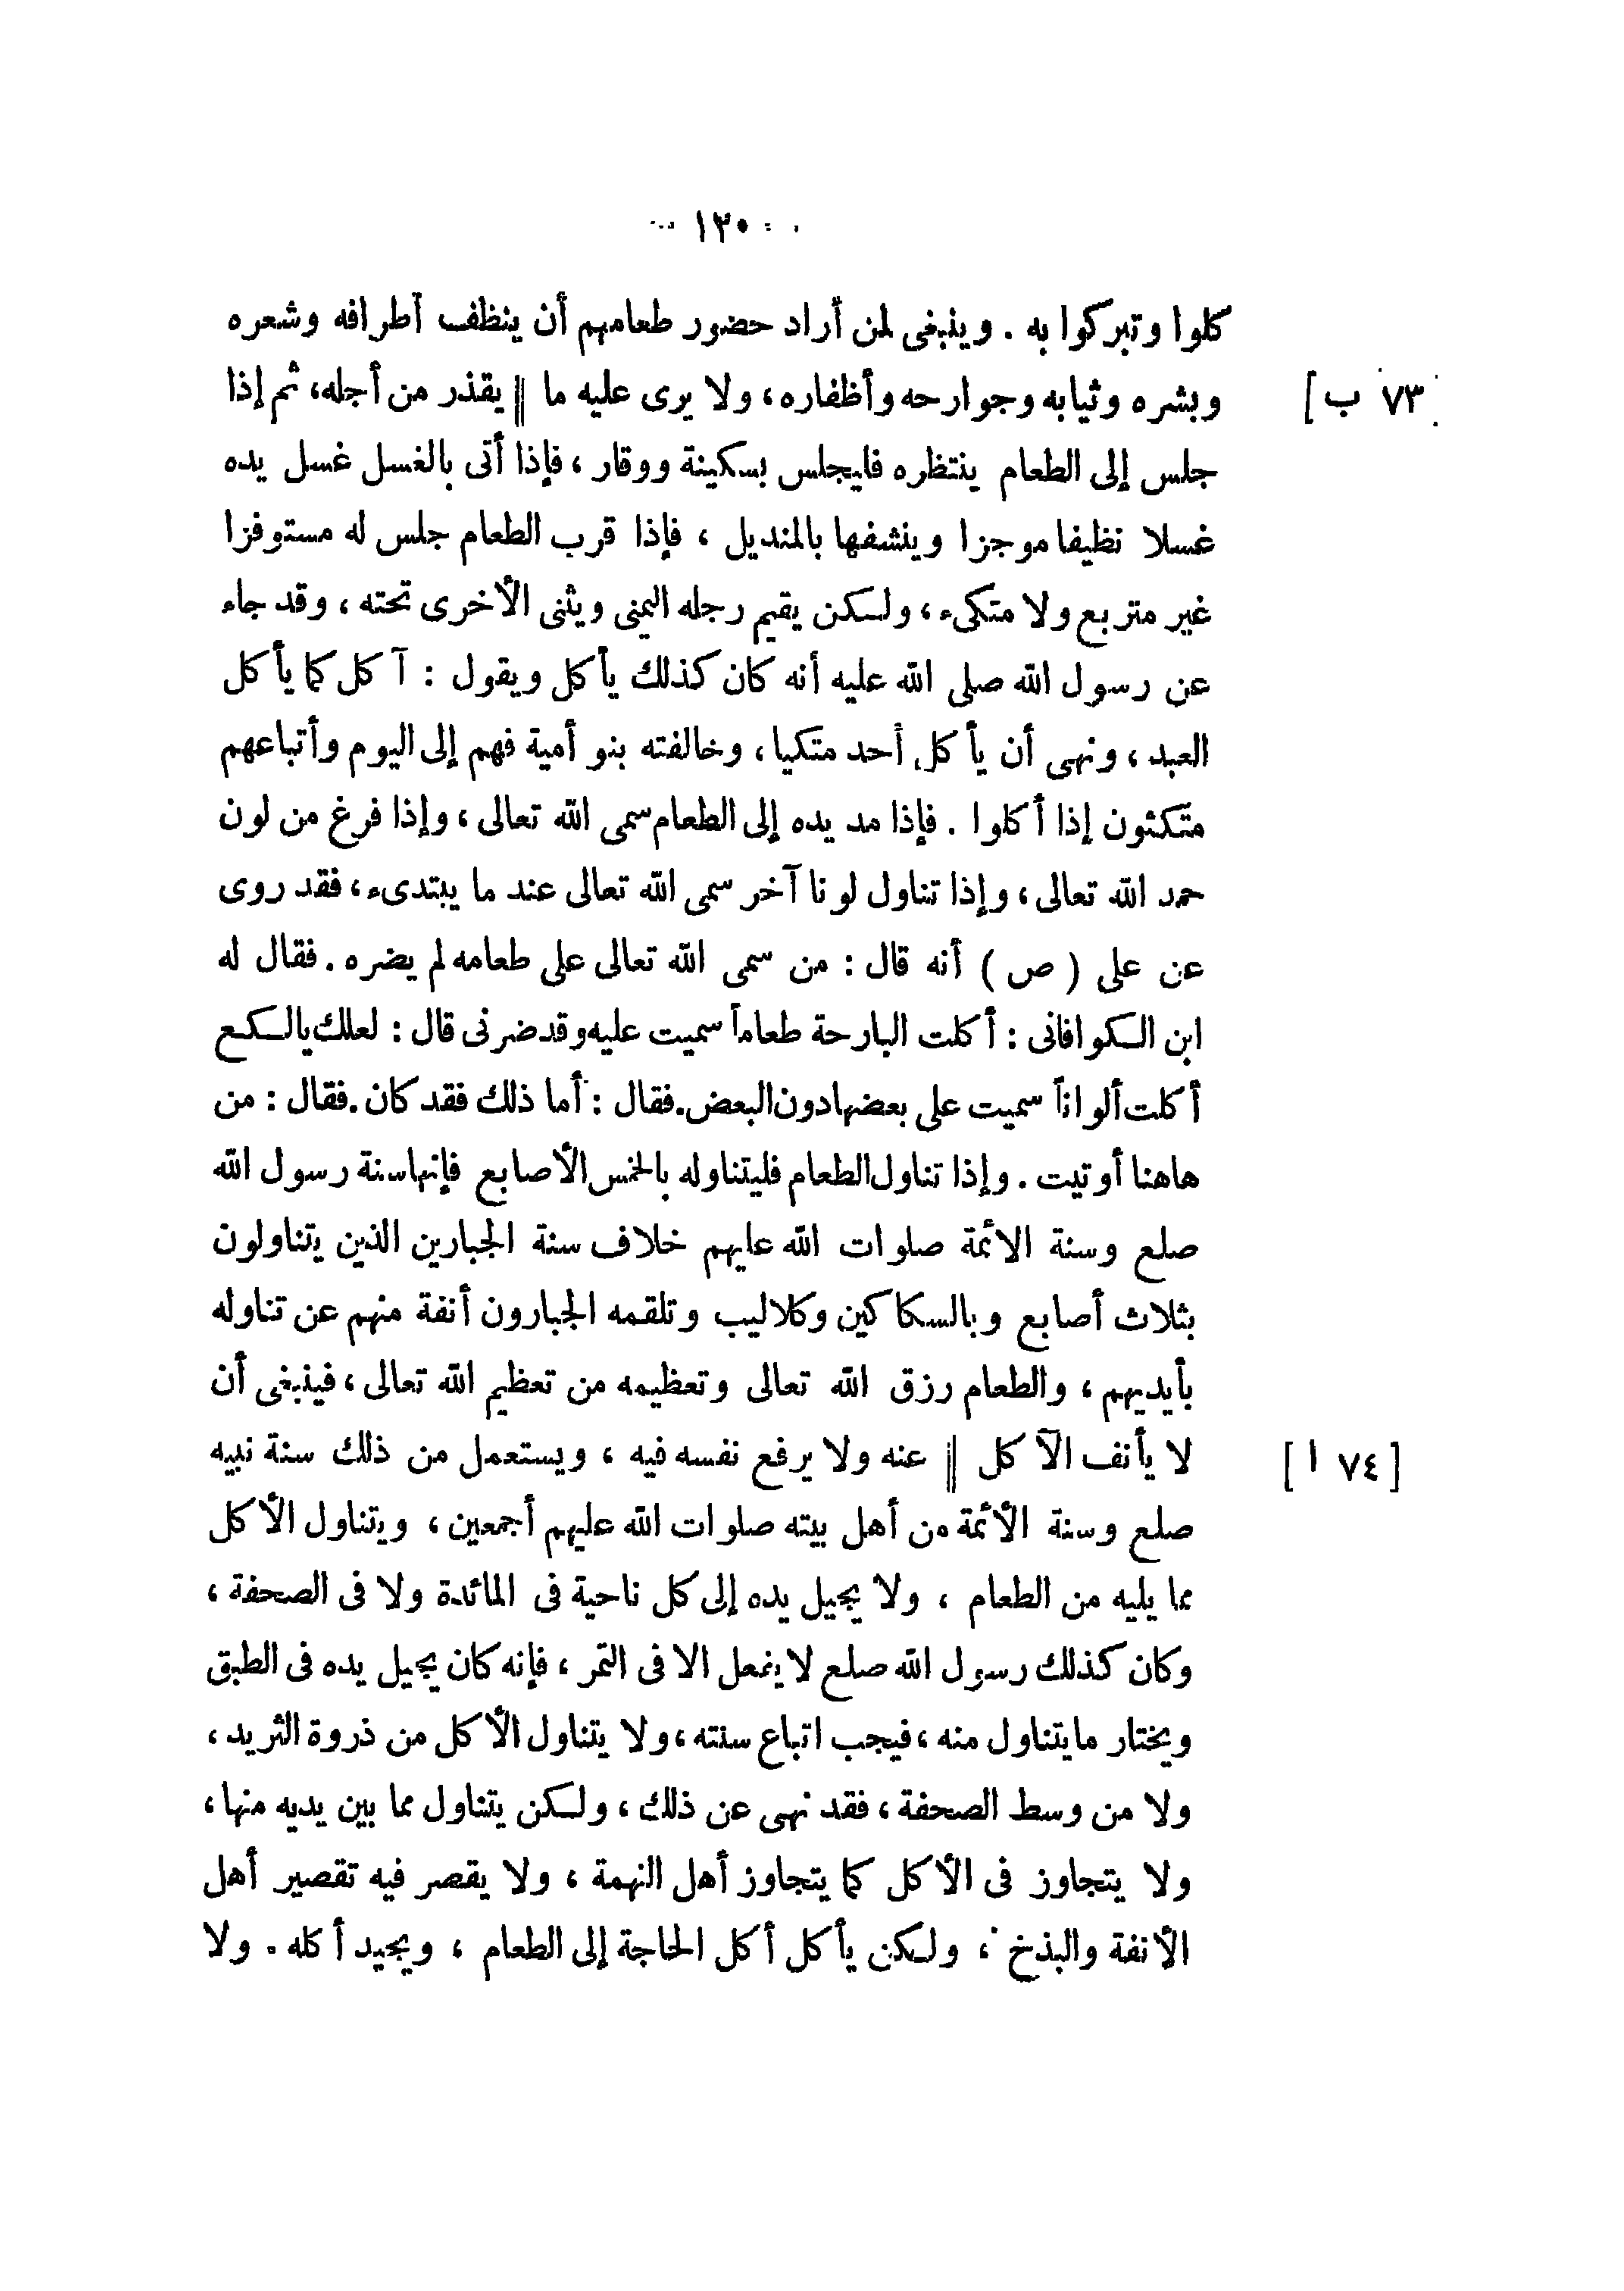 ١٢٠
كلوا وتبركوا به . وينبغى لمن أراد حضور طعامهم أن ينظف أطرافه وشعره
[٧٣ ب] وبشره وثيابه وجوارحه وأظفاره، ولا يرى عليه ما || يقذر من أجله، ثم إذا
جلس إلى الطعام ينتظره فليجلس بسكينة ووقار ، فإذا أتى بالغسل غسل يده
غسلا نظيفا موجزا وينشفها بالمنديل ، فإذا قرب الطعام جلس له مستوفزا
غير متربع ولا متكىء، ولكن يقيم رجله اليمنى ويثنى الأخرى تحته ، وقد جاء
عن رسول الله صلى الله عليه أنه كان كذلك يأكل ويقول : آكل كما يأكل
العبد ، ونهى أن يأكل أحد متكيا ، وخالفته بنو أمية فهم إلى اليوم وأتباعهم
متكئون إذا أكلوا . فإذا مد يده إلى الطعام سمى الله تعالى ، وإذا فرغ من لون
حمد الله تعالى ، وإذا تناول لونا آخر سمى الله تعالى عند ما يبتدىء، فقد روى
عن على ( ص ) أنه قال : من سمى الله تعالى على طعامه لم يضره . فقال له
ابن الكوافانى : أكلت البارحة طعاماً سميت عليه وقد ضرنى قال : لعلك يالكع
أكلت ألواناً سميت على بعضها دون البعض . فقال : أما ذلك فقد كان . فقال : من
هاهنا أوتيت . وإذا تناول الطعام فليتناوله بالخمس الأصابع فإنها سنة رسول الله
صلع وسنة الأئمة صلوات الله عليهم خلاف سنة الجبارين الذين يتناولون
بثلاث أصابع وبالسكاكين وكلاليب وتلقمه الجبارون أنفة منهم عن تناوله
بأيديهم ، والطعام رزق الله تعالى وتعظيمه من تعظيم الله تعالى ، فينبغى أن
[٧٤ ا] لا يأنف الآكل || عنه ولا يرفع نفسه فيه ، ويستعمل من ذلك سنة نبيه
صلع وسنة الأئمة من أهل بيته صلوات الله عليهم أجمعين ، ويتناول الأكل
مما يليه من الطعام ، ولا يجيل يده إلى كل ناحية فى المائدة ولا فى الصحفة ،
وكان كذلك رسول الله صلع لا يفعل الا فى التمر ، فإنه كان يجيل يده فى الطبق
ويختار ما يتناول منه ، فيجب اتباع سنته ، ولا يتناول الأكل من ذروة الثريد ،
ولا من وسط الصحفة ، فقد نهى عن ذلك ، ولكن يتناول مما بين يديه منها ،
ولا يتجاوز فى الأكل كما يتجاوز أهل النهمة ، ولا يقصر فيه تقصير أهل
الأنفة والبذخ ، ولكن يأكل أكل الحاجة إلى الطعام ، ويجيد أكله . ولا